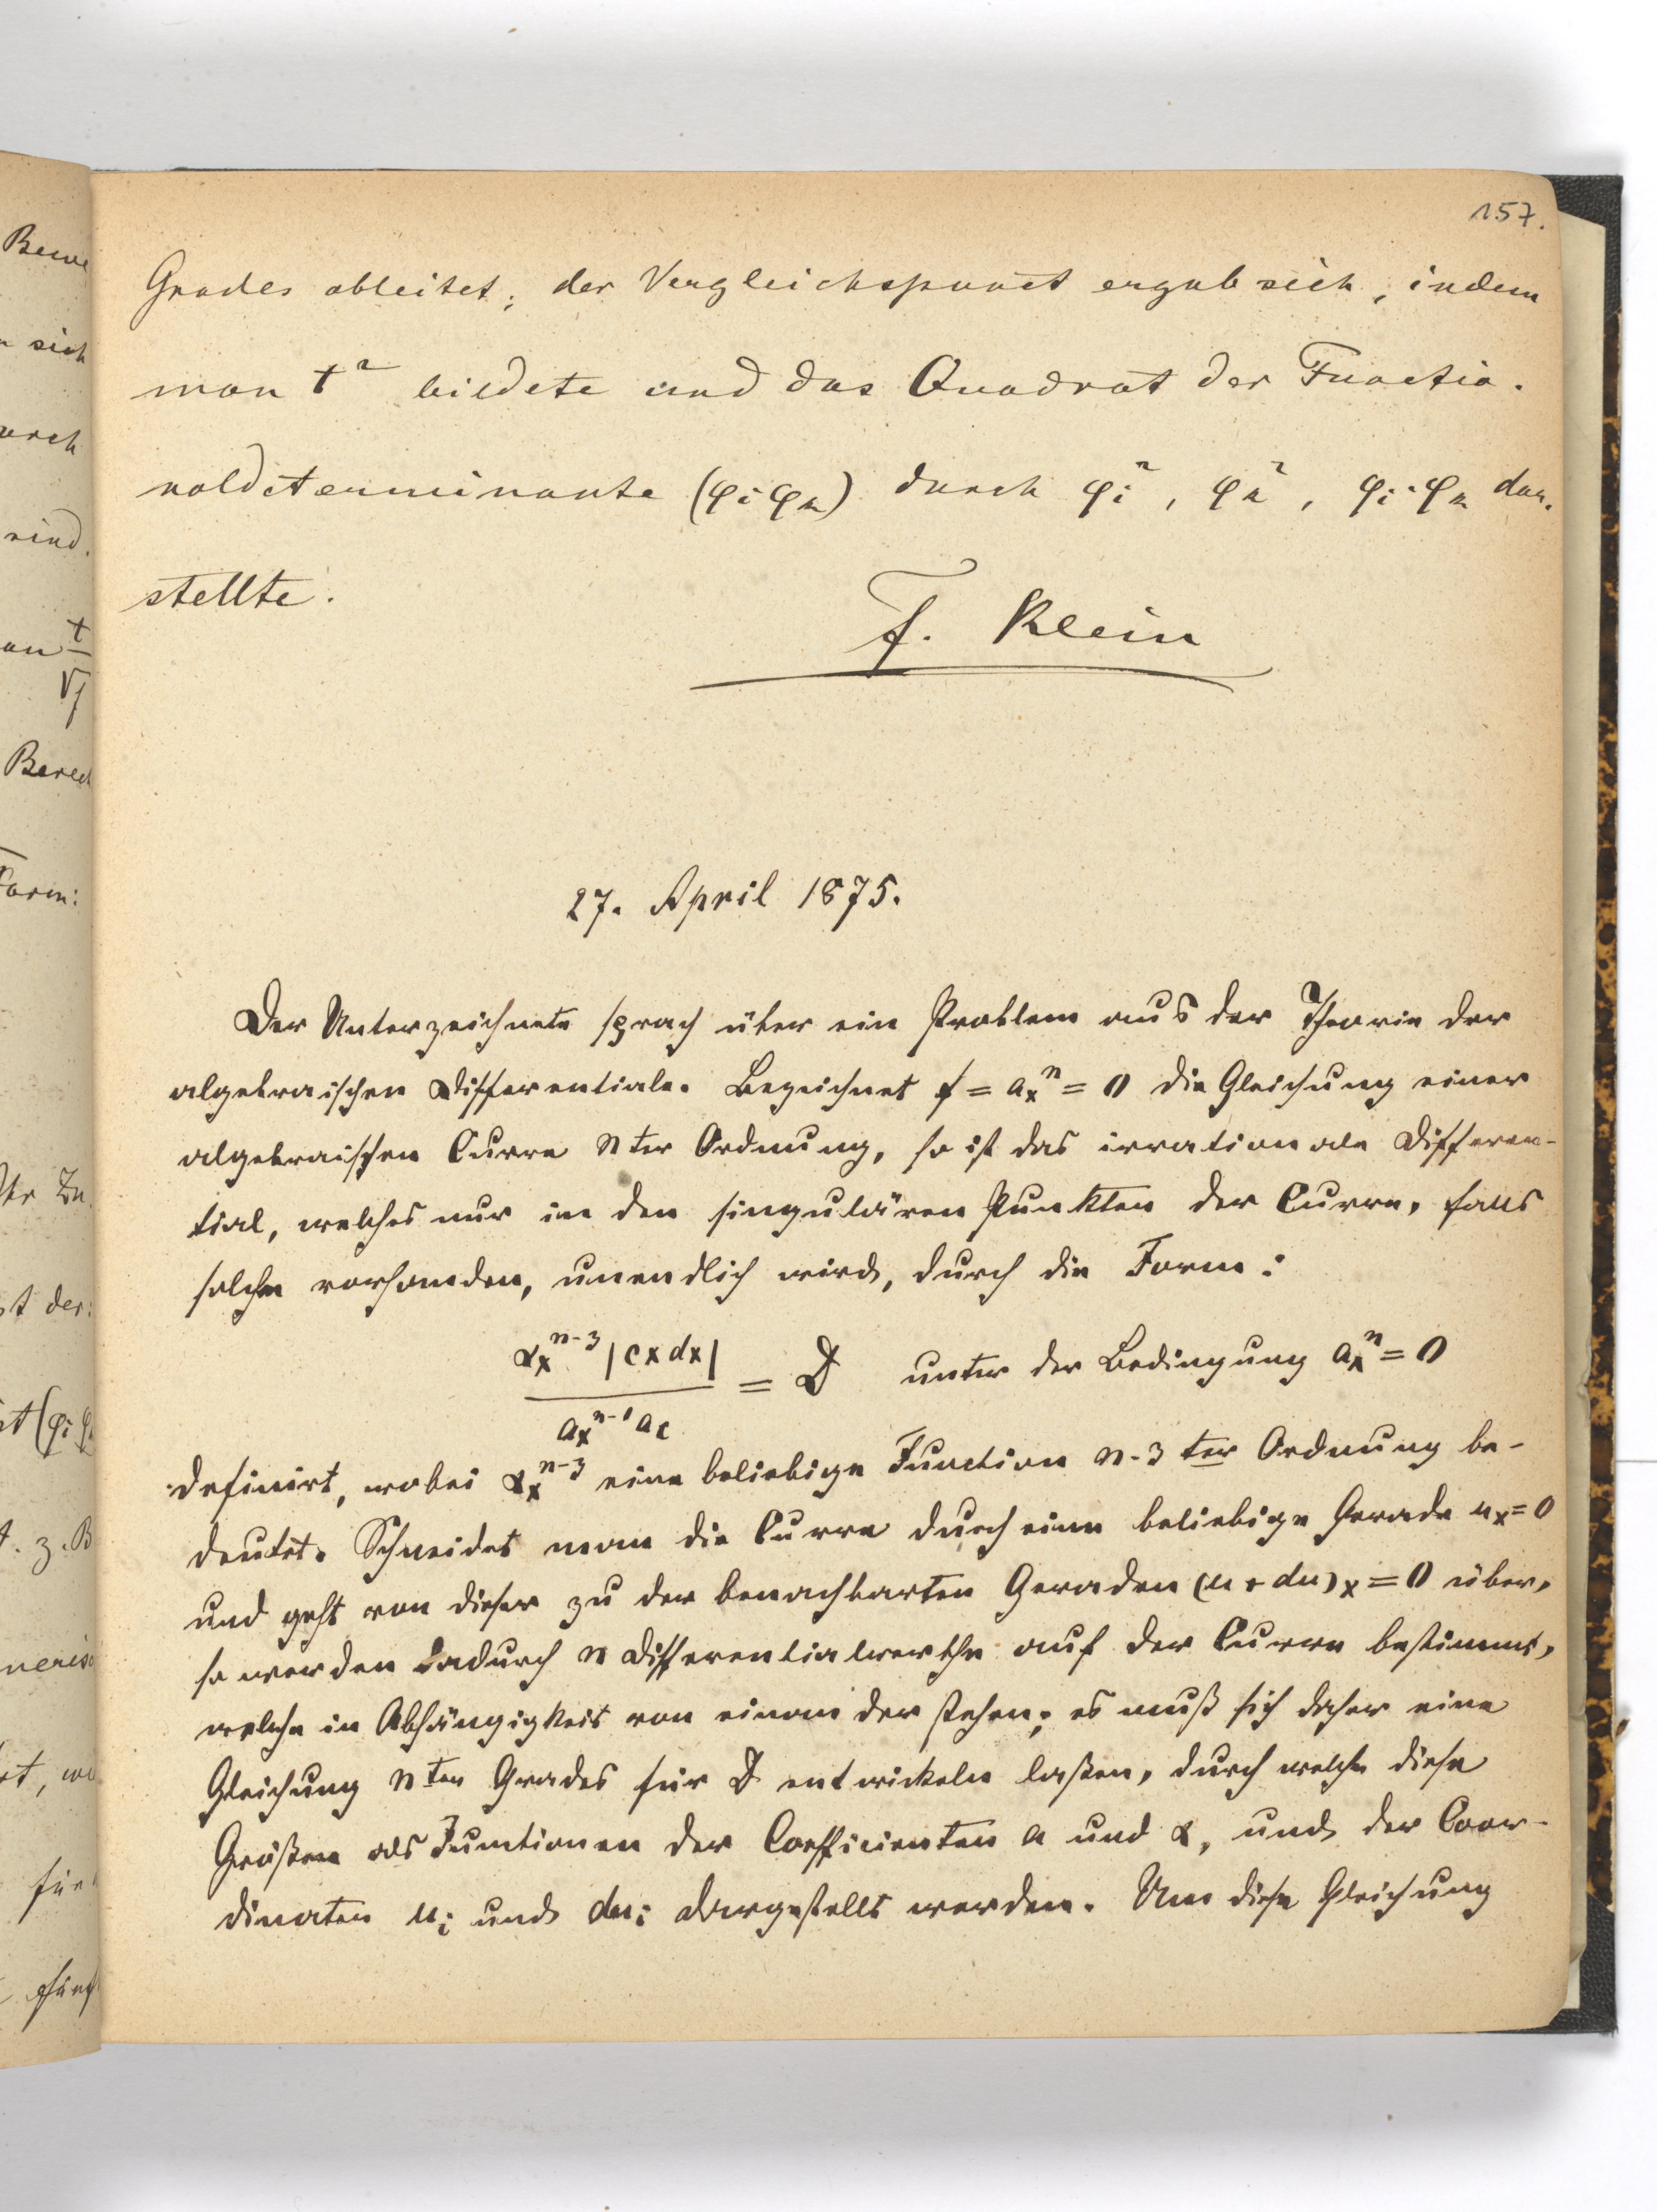 157.
Grades ableitet; der Vergleichspunct ergab sich, indem
man t² bildete und das Quadrat der Functio-
naldeterminante (φᵢφₖ) durch φᵢ², φₖ², φᵢ·φₖ dar-
stellte.
F. Klein
27. April 1875.
Der Unterzeichnete sprach über ein Problem aus der Theorie der
algebraischen Differentiale. Bezeichnet f = aₓⁿ = 0 die Gleichung einer
algebraischen Curve nter Ordnung, so ist das irrationale Differen-
tial, welches nur in den singulären Punkten der Curve, falls
solche vorhanden, unendlich wird, durch die Form:
αₓⁿ⁻³ |c x dx| / aₓⁿ⁻¹ a_c = D unter der Bedingung aₓⁿ = 0
definirt, wobei αₓⁿ⁻³ eine beliebige Function n-3 ter Ordnung be-
deutet. Schneidet man die Curve durch eine beliebige Gerade uₓ = 0
und geht von dieser zu der benachbarten Geraden (u + du)ₓ = 0 über,
so werden dadurch n Differentialwerthe auf der Curve bestimmt,
welche in Abhängigkeit von einander stehen; es muß sich daher eine
Gleichung nten Grades für D entwickeln laßen, durch welche diese
Größen als Functionen der Coefficienten a und α, und der Coor-
dinaten uᵢ und duᵢ dargestellt werden. Um diese Gleichung
Bewe
sich
urch
sind.
an t/√f
Berech
Form:
st der
z. B
für